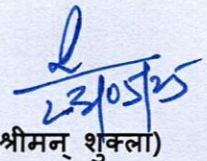 23/05/25
श्रीमन् शुक्ला)